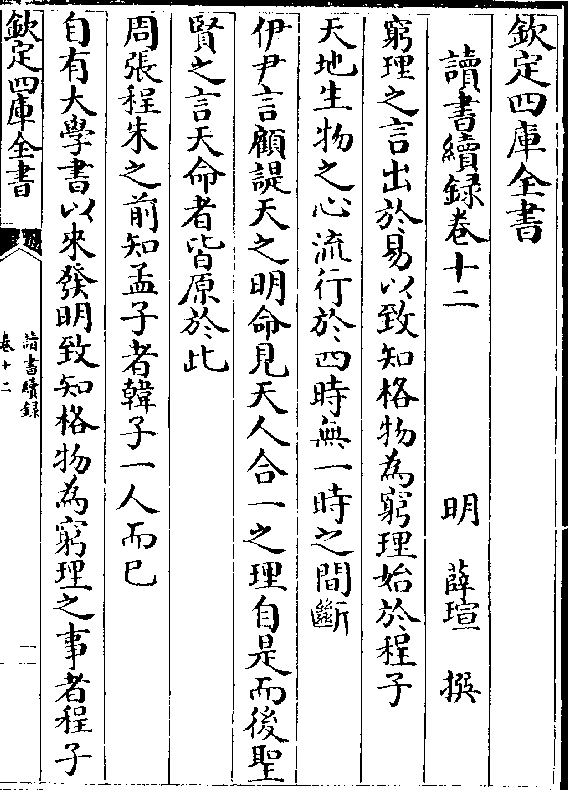 欽定四庫全書
讀書續録卷十二
明 薛瑄 撰
窮理之言出於易以致知格物為窮理始於程子
天地生物之心流行於四時無一時之間斷
伊尹言顧諟天之明命見天人合一之理自是而後聖
賢之言天命者皆原於此
周張程朱之前知孟子者韓子一人而已
自有大學書以來發明致知格物為窮理之事者程子
欽定四庫全書
讀書續録
卷十二
一